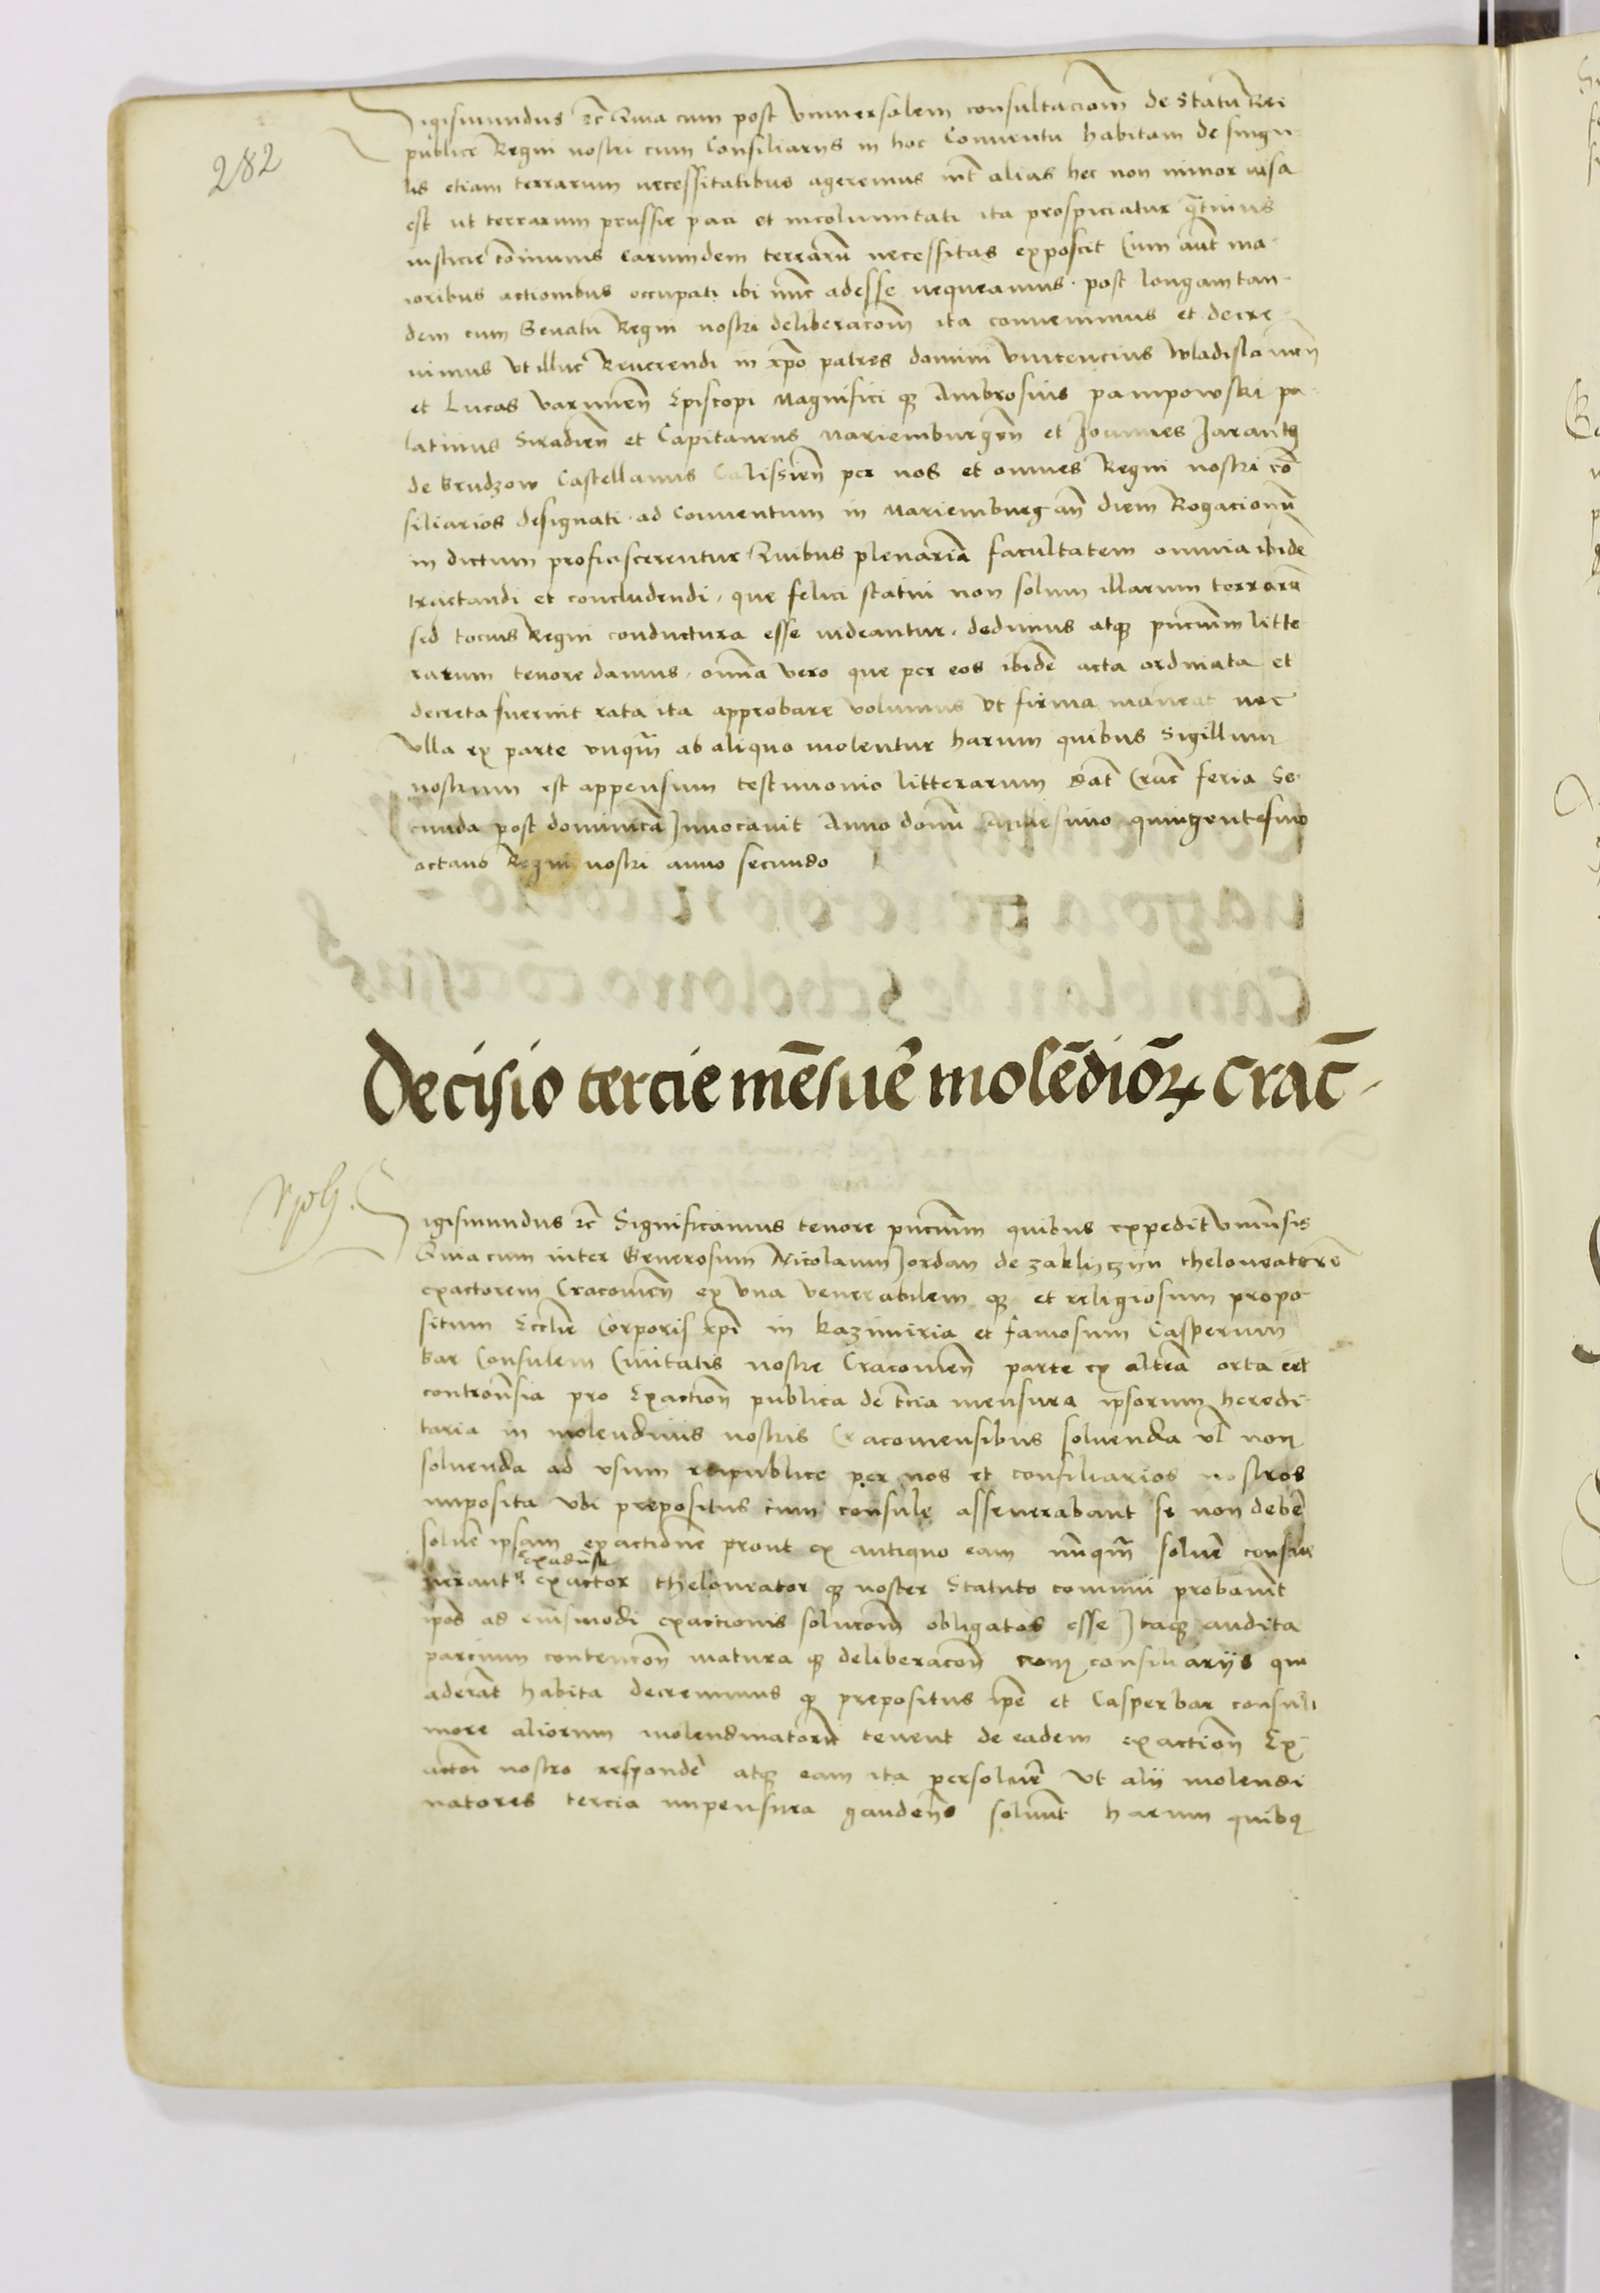 282
Sigismundus ꝛc̄ Quia cum post vniuersalem consultaciom̄ de statu Rei
publice Regni nostri cum Consiliarijs in hoc Conuentu habitam de singu
lis etiam terrarum necessitatibus ageremus int̄ alias hec non minor visa
est ut terrarum prussie paci et incolumitati ita prospiciatur q̄tinus
iusticie cōmunis earumdem terrarū necessitas exposcit Cum aūt ma
ioribus actionibus occupati ibi nūc adesse nequeamus · post longam tan-
dem cum Senatu Regni nostri deliberacom̄ ita conuenimus et decre
uimus vt illuc Reuerendi in xp̄o patres domini vincencius wladislauien̄
et Lucas varmien̄ Episcopi Magnifici qȝ Ambrosius pampowski pa
latinus Siradien̄ et Capitaneus Mariemburgen̄ et Joannes Jarantȝ
de Brudzow Castellanus Calissien̄ per nos et omnes Regni nostri cō
siliarios designati · ad Conuentum in Mariemburg an̄ diem Rogacionū
in dictum proficiscerentur Quibus plenariā facultatem omnia ibidē
tractandi et concludendi, que felici statui non solum illarum terrarū
sed tocius Regni conductura esse videantur, dedimus atqȝ pn̄cium litte
rarum tenore damus, omnia vero que per eos ibidē acta ordinata et
decreta fuerint rata ita approbare volumus vt firma maneat nec
vlla ex parte vnqm̄ ab aliquo violentur harum quibus Sigillum
nostrum est appensum testimonio litterarum Dat̄ Crac̄ feria Se-
cunda post dominicā Inuocauit Anno domi Millesimo quingentesimo
octauo Regni nostri anno secundo
Decisio tercie mēsue molēdioꝝ Crac̄
Sigismundus ꝛc̄ Significamus tenore pn̄cium quibus expedit vniuersis
Quia cum inter Generosum Nicolaum Jordan de zakliczyn theloneatorē
exactorem Cracouien̄ ex vna venerabilem qȝ et religiosum prepo-
situm Ecclie Corporis xpi in Kazimiria et famosum Casperum
Bar Consulem Ciuitatis nostre Cracouien̄ parte ex altera orta est
controuersia pro Exactioni publica de tercia mensura ipsorum heredi-
taria in molendinis nostris Cracouiensibus soluenda vl̄ non
soluenda ad vsum reipublice per nos et consiliarios nostros
imposita vbi prepositus cum consule asseuerabant se non debē
soluē ipsam exactionē prout ex antiquo eam nūqm̄ soluē consue
exaduerso
uerant exactor theloneator qȝ noster Statuto comuni probauit
ipos ad eiusmodi exactionis solucom̄ obligatos esse Itaqȝ audita
parcium contencion̄ matura qȝ deliberacon̄ cum consiliarijs qui
aderāt habita decreuimus qȝ prepositus ipse et Casper bar consul
more aliorum molendinatorū tenent de eadem exaction̄ Ex-
actori nostro respondē atqȝ eam ita persoluē vt alij molendi
natores tercia inpensura gaudens soluūt harum quibus